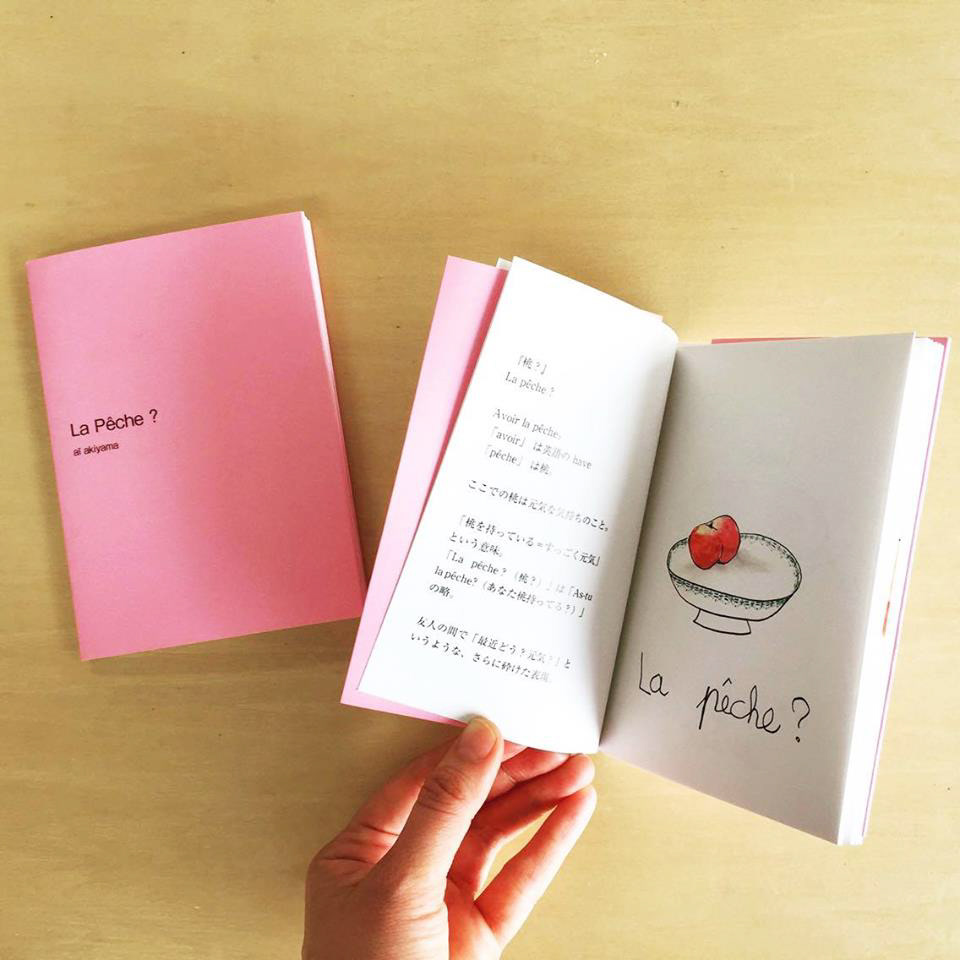 La Pêche ?
aï akiyama
「桃？」
La pêche ?
Avoir la pêche。
「avoir」 は英語の have
「pêche」 は桃。
ここでの桃は元気な気持ちのこと。
「桃を持っている＝すっごく元気」
という意味。
「La pêche ?（桃？）」は「As-tu
la pêche?（あなた桃持ってる？）」
の略。
友人の間で「最近どう？元気？」と
いうような、さらに砕けた表現。
La pêche ?